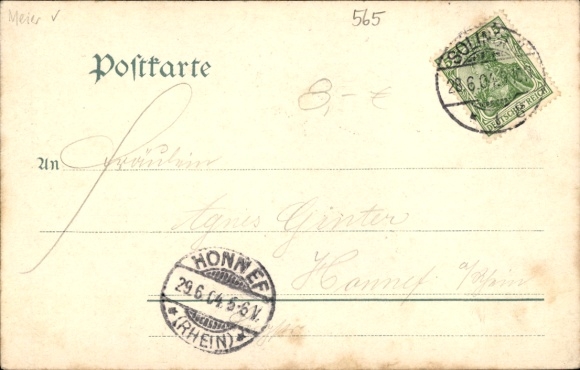 Meier v
565
Postkarte
8,- €
SOLING
28.6.04
DEUTSCHES REICH
An Fräulein
Agnes Ginter
Honnef a/Rhein
HONNEF
29.6.04.5-6V.
*(RHEIN)*